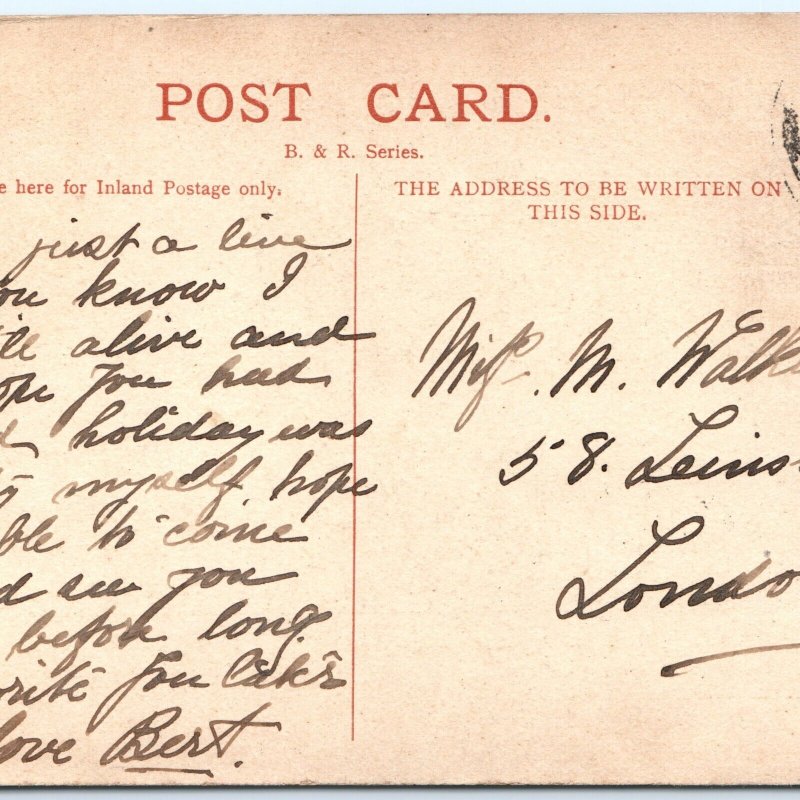 POST CARD.
B. & R. Series.
here for Inland Postage only.
THE ADDRESS TO BE WRITTEN ON
THIS SIDE.
just a line
know I
alive and
you had
holiday was
myself, hope
to come
see you
before long.
you later
love Bert.
Miss. M.
58.